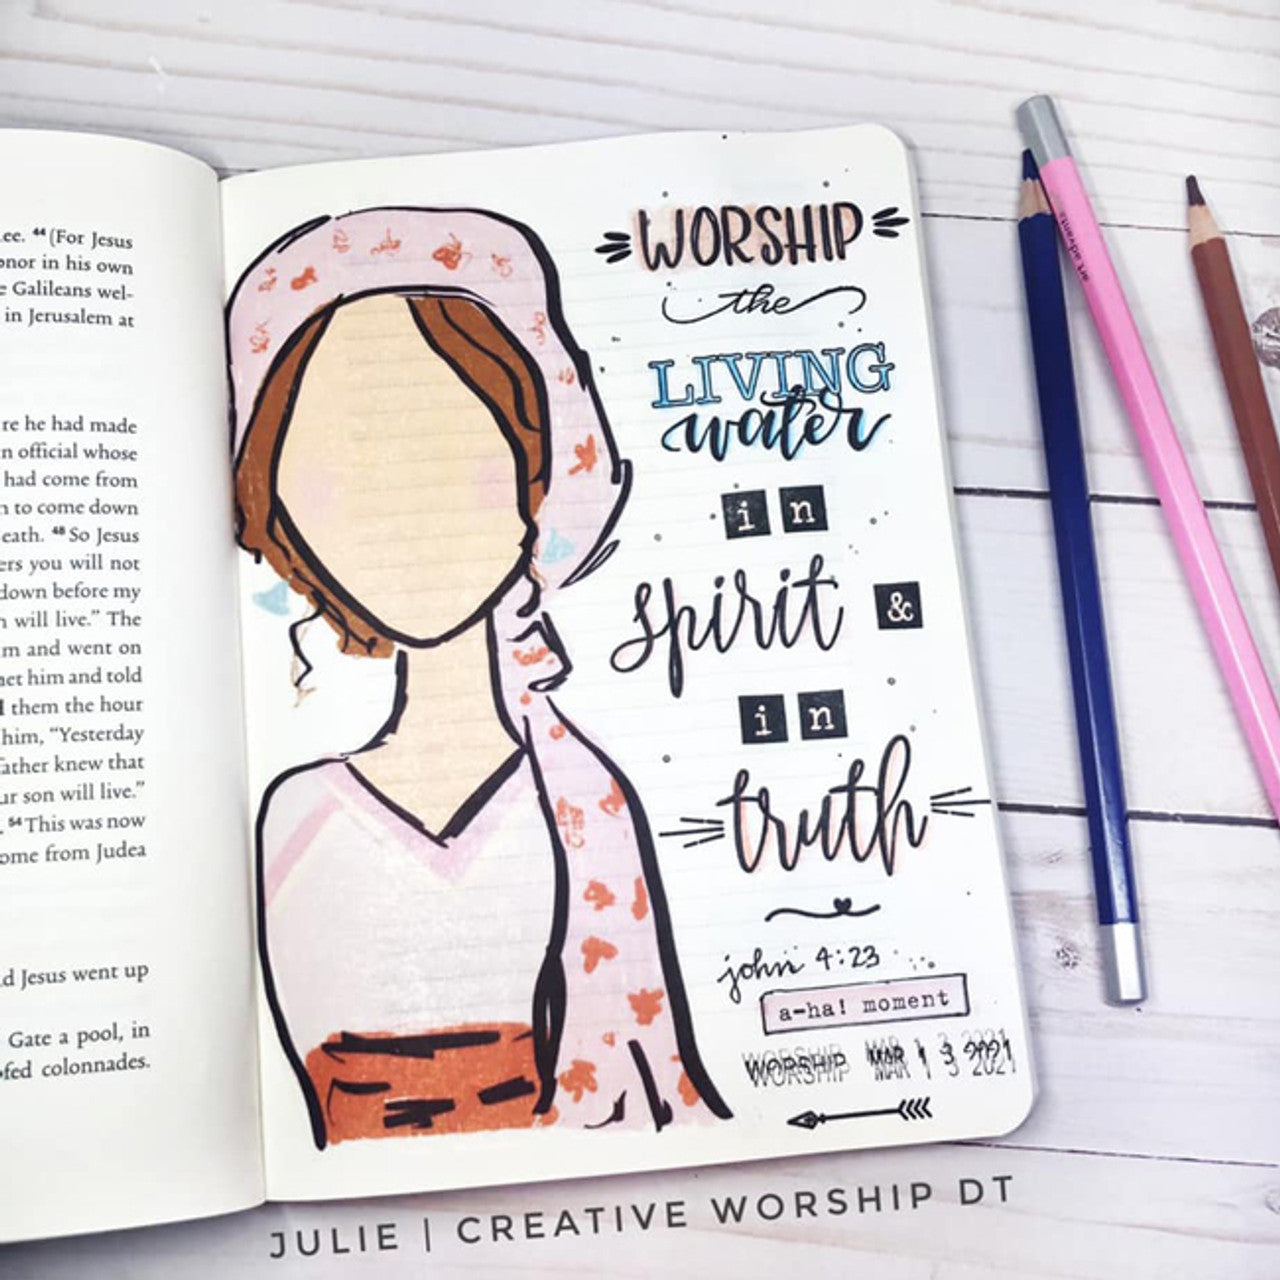 ee. 44 (For Jesus
onor in his own
e Galileans wel-
in Jerusalem at
re he had made
n official whose
had come from
n to come down
eath. 48 So Jesus
ers you will not
down before my
n will live.” The
m and went on
net him and told
d them the hour
him, “Yesterday
father knew that
ur son will live.”
54 This was now
ome from Judea
d Jesus went up
Gate a pool, in
ofed colonnades.
WORSHIP
the
LIVING
water
in
spirit &
in
truth
john 4:23
a-ha! moment
WORSHIP MAR 13 2021
JULIE | CREATIVE WORSHIP DT